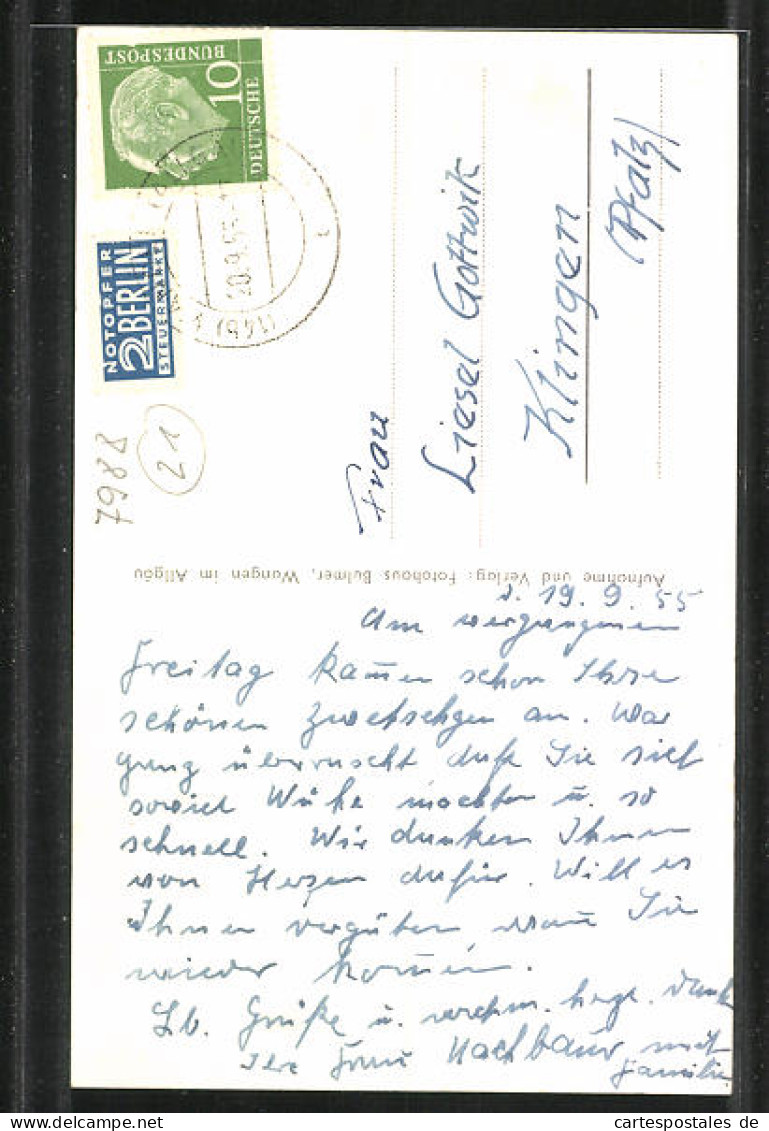 10
DEUTSCHE
BUNDESPOST
NOTOPFER
2 BERLIN
STEUERMARKE
(14b)
20.9.55
7988
21
Frau
Liesel Gottwik
Klingen
(Pfalz)
Aufnahme und Verlag: Fotohaus Bulmer, Wangen im Allgäu
d. 19. 9. 55
Am vergangenen
Freitag kamen schon Ihre
schönen Zwetschgen an. War
ganz überrascht daß Sie sich
soviel Mühe machten u. so
schnell. Wir danken Ihnen
von Herzen dafür. Will es
Ihnen vergüten wann Sie
wieder kommen.
Lb. Grüße u. nochm. herzl. Dank
Ihre Frau Nachbaur mit
Familie
cartespostales.de